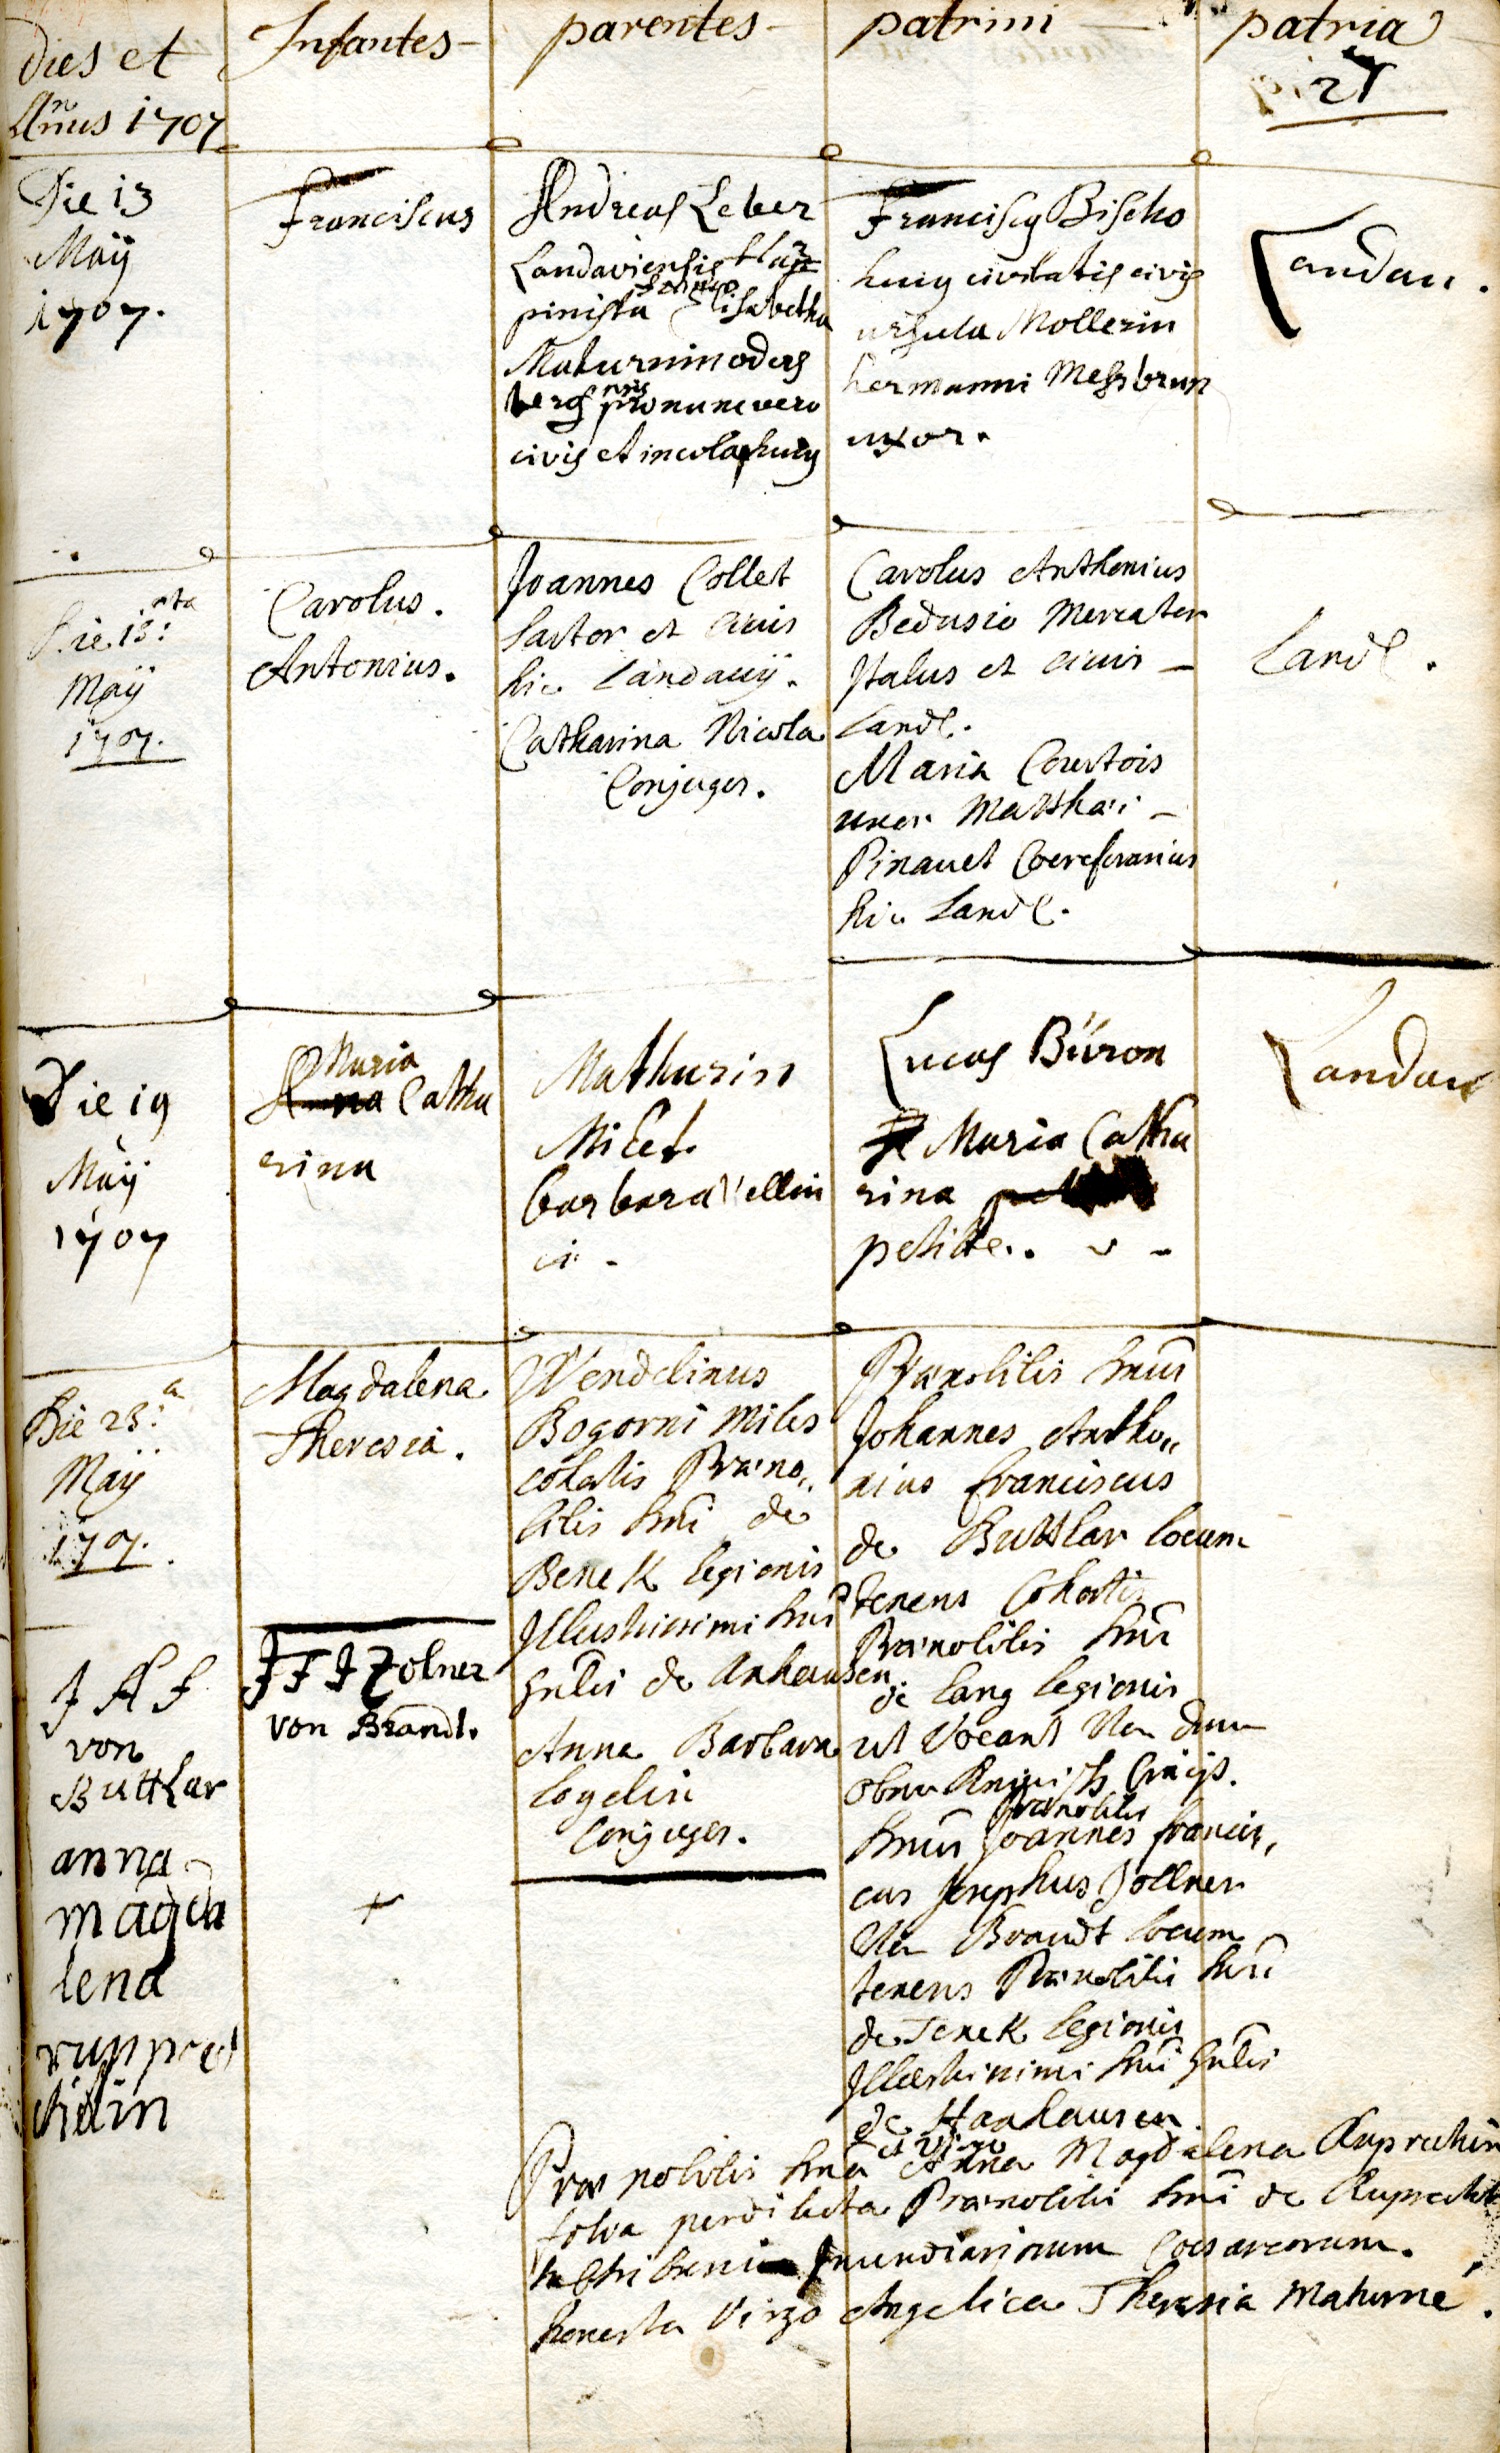 dies et
Añus 1707
Infantes
parentes
patrini
patria
27
Die 13
Maÿ
1707.
Franciscus
Andreas Leber
Landaviensis
pinista Elisabetha
Maturnin oders
berg pro nunc vero
civis et incola huig
Franciscg Bischo
huig civitatis civis
ursula Mollerin
hermanni Messbrun
uxor.
Landau.
Die 18:
Maÿ
1707.
Carolus.
Antonius.
Joannes Collet
sartor et civis
hic Landavÿ.
Catharina Nicola
Conjuges.
Carolus Anthonius
Bedusio Mercator
Italus et civis
Land.
Maria Courtois
uxor Matthæi
Pinauet
hic Land.
Land.
Die 19
Maÿ
1707
Maria
Anna Catha
rina
Mathurin
Milet
barbara
Lucas Büron
Maria Catha
rina
petitte..
Landau
Die 23:a
Maÿ
1707.
Magdalena
Theresia.
Wendelinus
Bogorni miles
cohortis Præno,,
bilis Dni de
Benek legionis
Illustrissimi Dni
de Anhausen
Anna Barbara
Logelin
Conjuges.
Prænobilis Dnus
Johannes Antho,,
nius franciscus
de Buttlar locum
tenens Cohortis
Prænobilis Dni
de Lang legionis
ut vocant
Prænobilis
Dnus Joannes francis,
cus Josephus Zollner
Von Brandt locum
tenens Prænobilis Dni
de Tenek legionis
Illustrissimi Dni
de Hanhausen.
J A F
von
Buttlar
anna
magda
lena
ruppre
chtin
J F J Zolner
von Brandt.
+
et Virgo
Prænobilis Dna Anna Magdalena Ruprechtin
Prænobilis Dni de Ruprecht
Cæsareorum.
honesta Virgo Angelica Theresia Maturne.